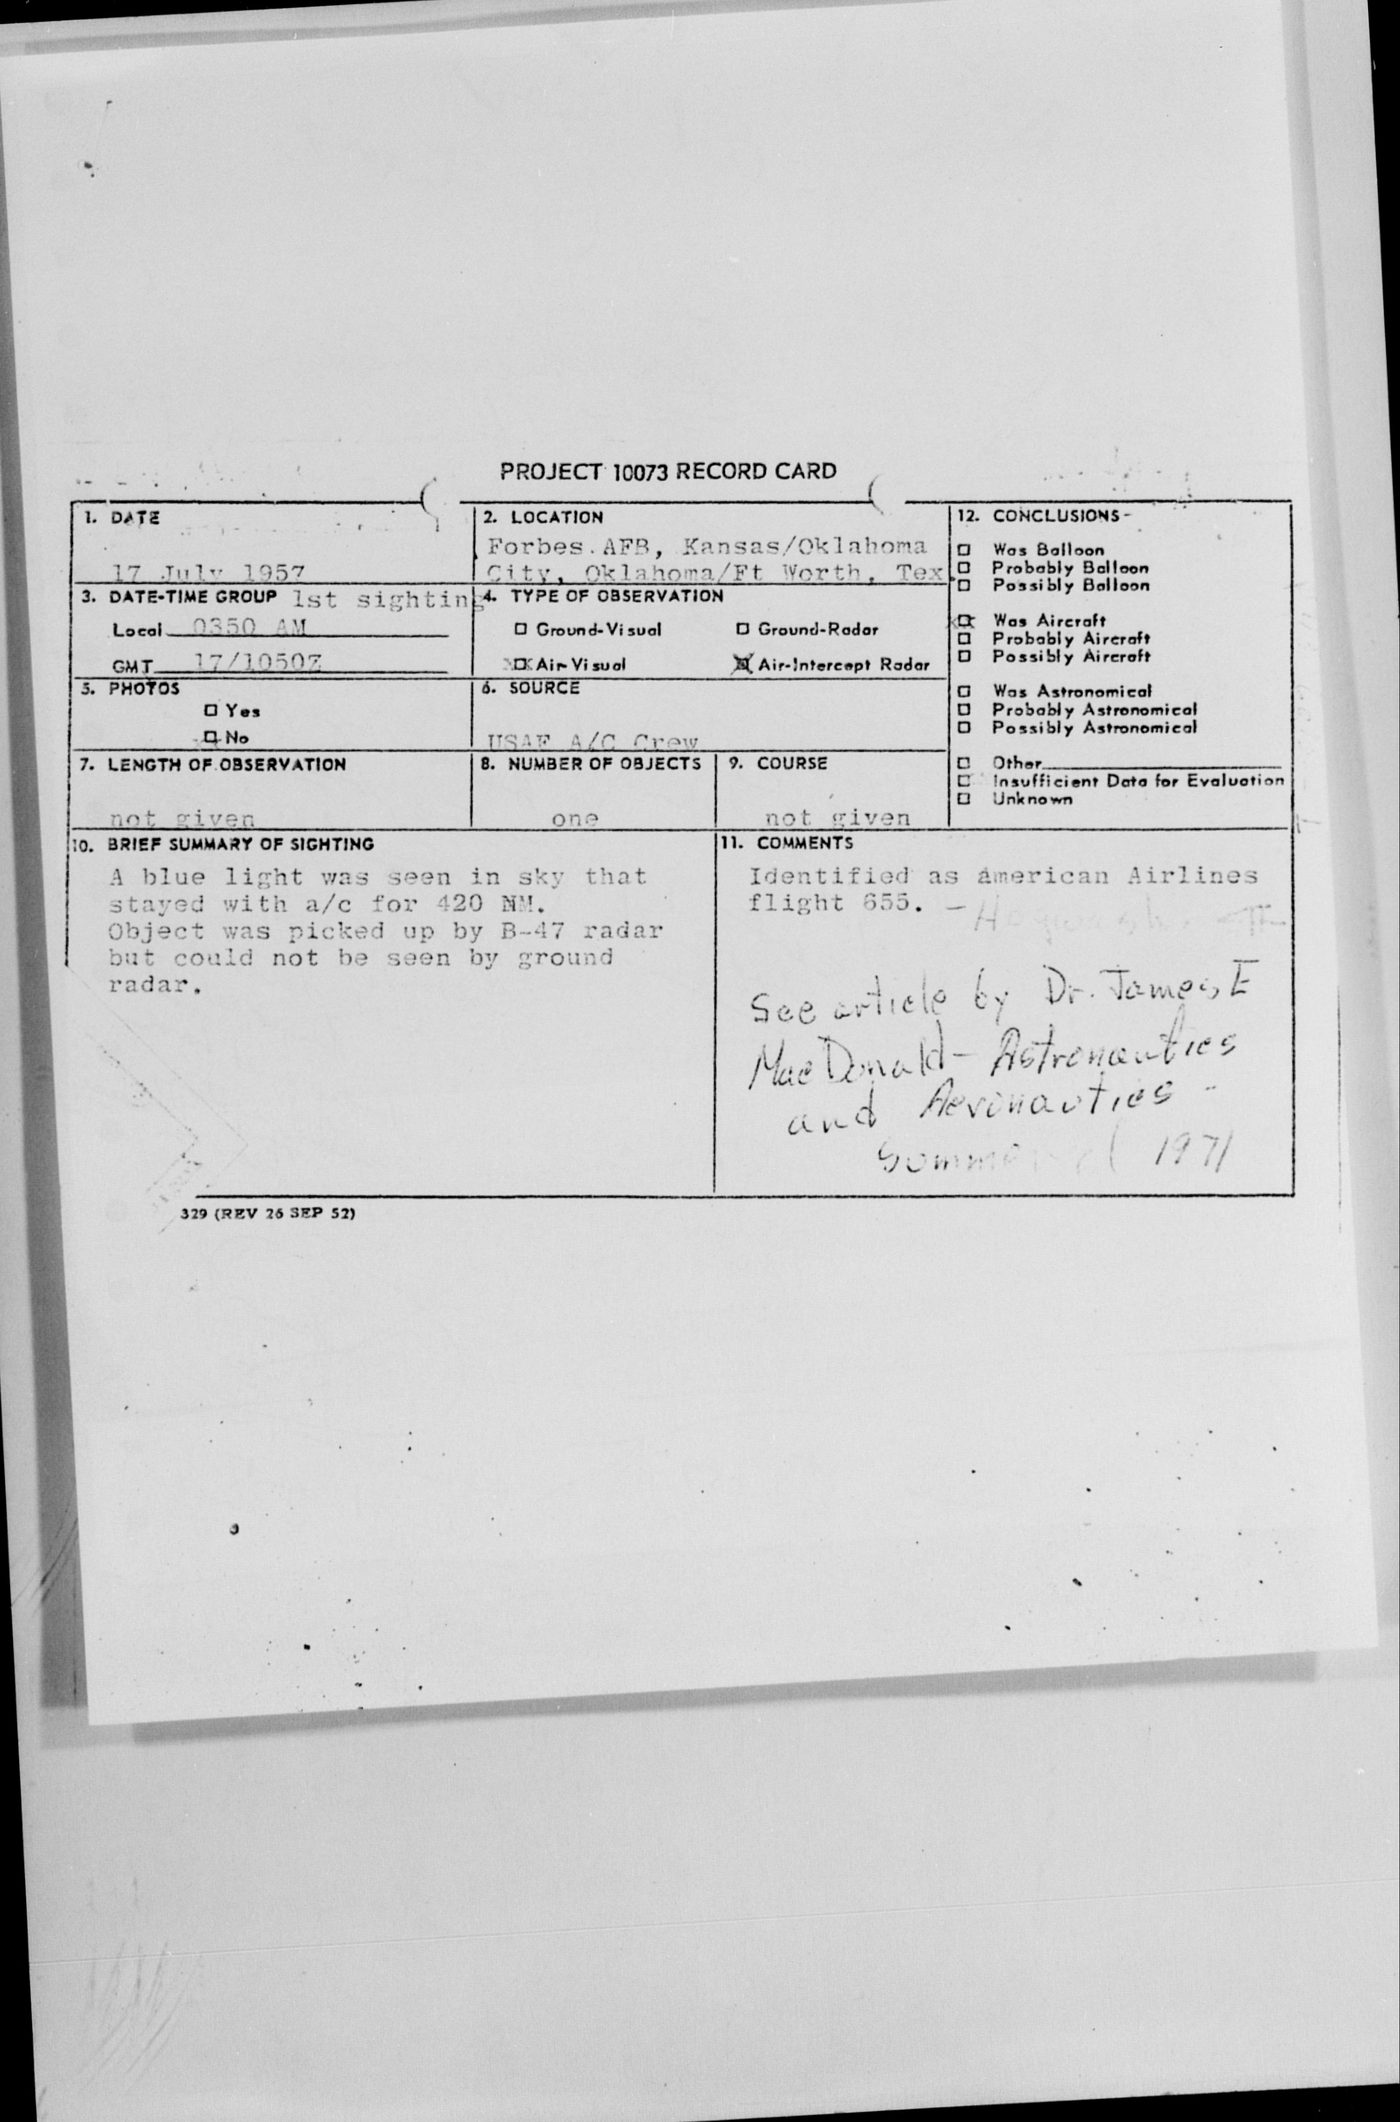 PROJECT 10073 RECORD CARD
1. DATE
17 July 1957
2. LOCATION
Forbes AFB, Kansas/Oklahoma
City, Oklahoma/Ft Worth, Tex.
3. DATE-TIME GROUP 1st sighting
Local 0350 AM
GMT 17/1050Z
4. TYPE OF OBSERVATION
Ground-Visual
Ground-Radar
XX Air-Visual
X Air-Intercept Radar
5. PHOTOS
Yes
No
6. SOURCE
USAF A/C Crew
7. LENGTH OF OBSERVATION
not given
8. NUMBER OF OBJECTS
one
9. COURSE
not given
12. CONCLUSIONS
Was Balloon
Probably Balloon
Possibly Balloon
XX Was Aircraft
Probably Aircraft
Possibly Aircraft
Was Astronomical
Probably Astronomical
Possibly Astronomical
Other
Insufficient Data for Evaluation
Unknown
10. BRIEF SUMMARY OF SIGHTING
A blue light was seen in sky that
stayed with a/c for 420 NM.
Object was picked up by B-47 radar
but could not be seen by ground
radar.
11. COMMENTS
Identified as American Airlines
flight 655. –
See article by Dr. James E
MacDonald - Astronautics
and Aeronautics -
1971
329 (REV 26 SEP 52)